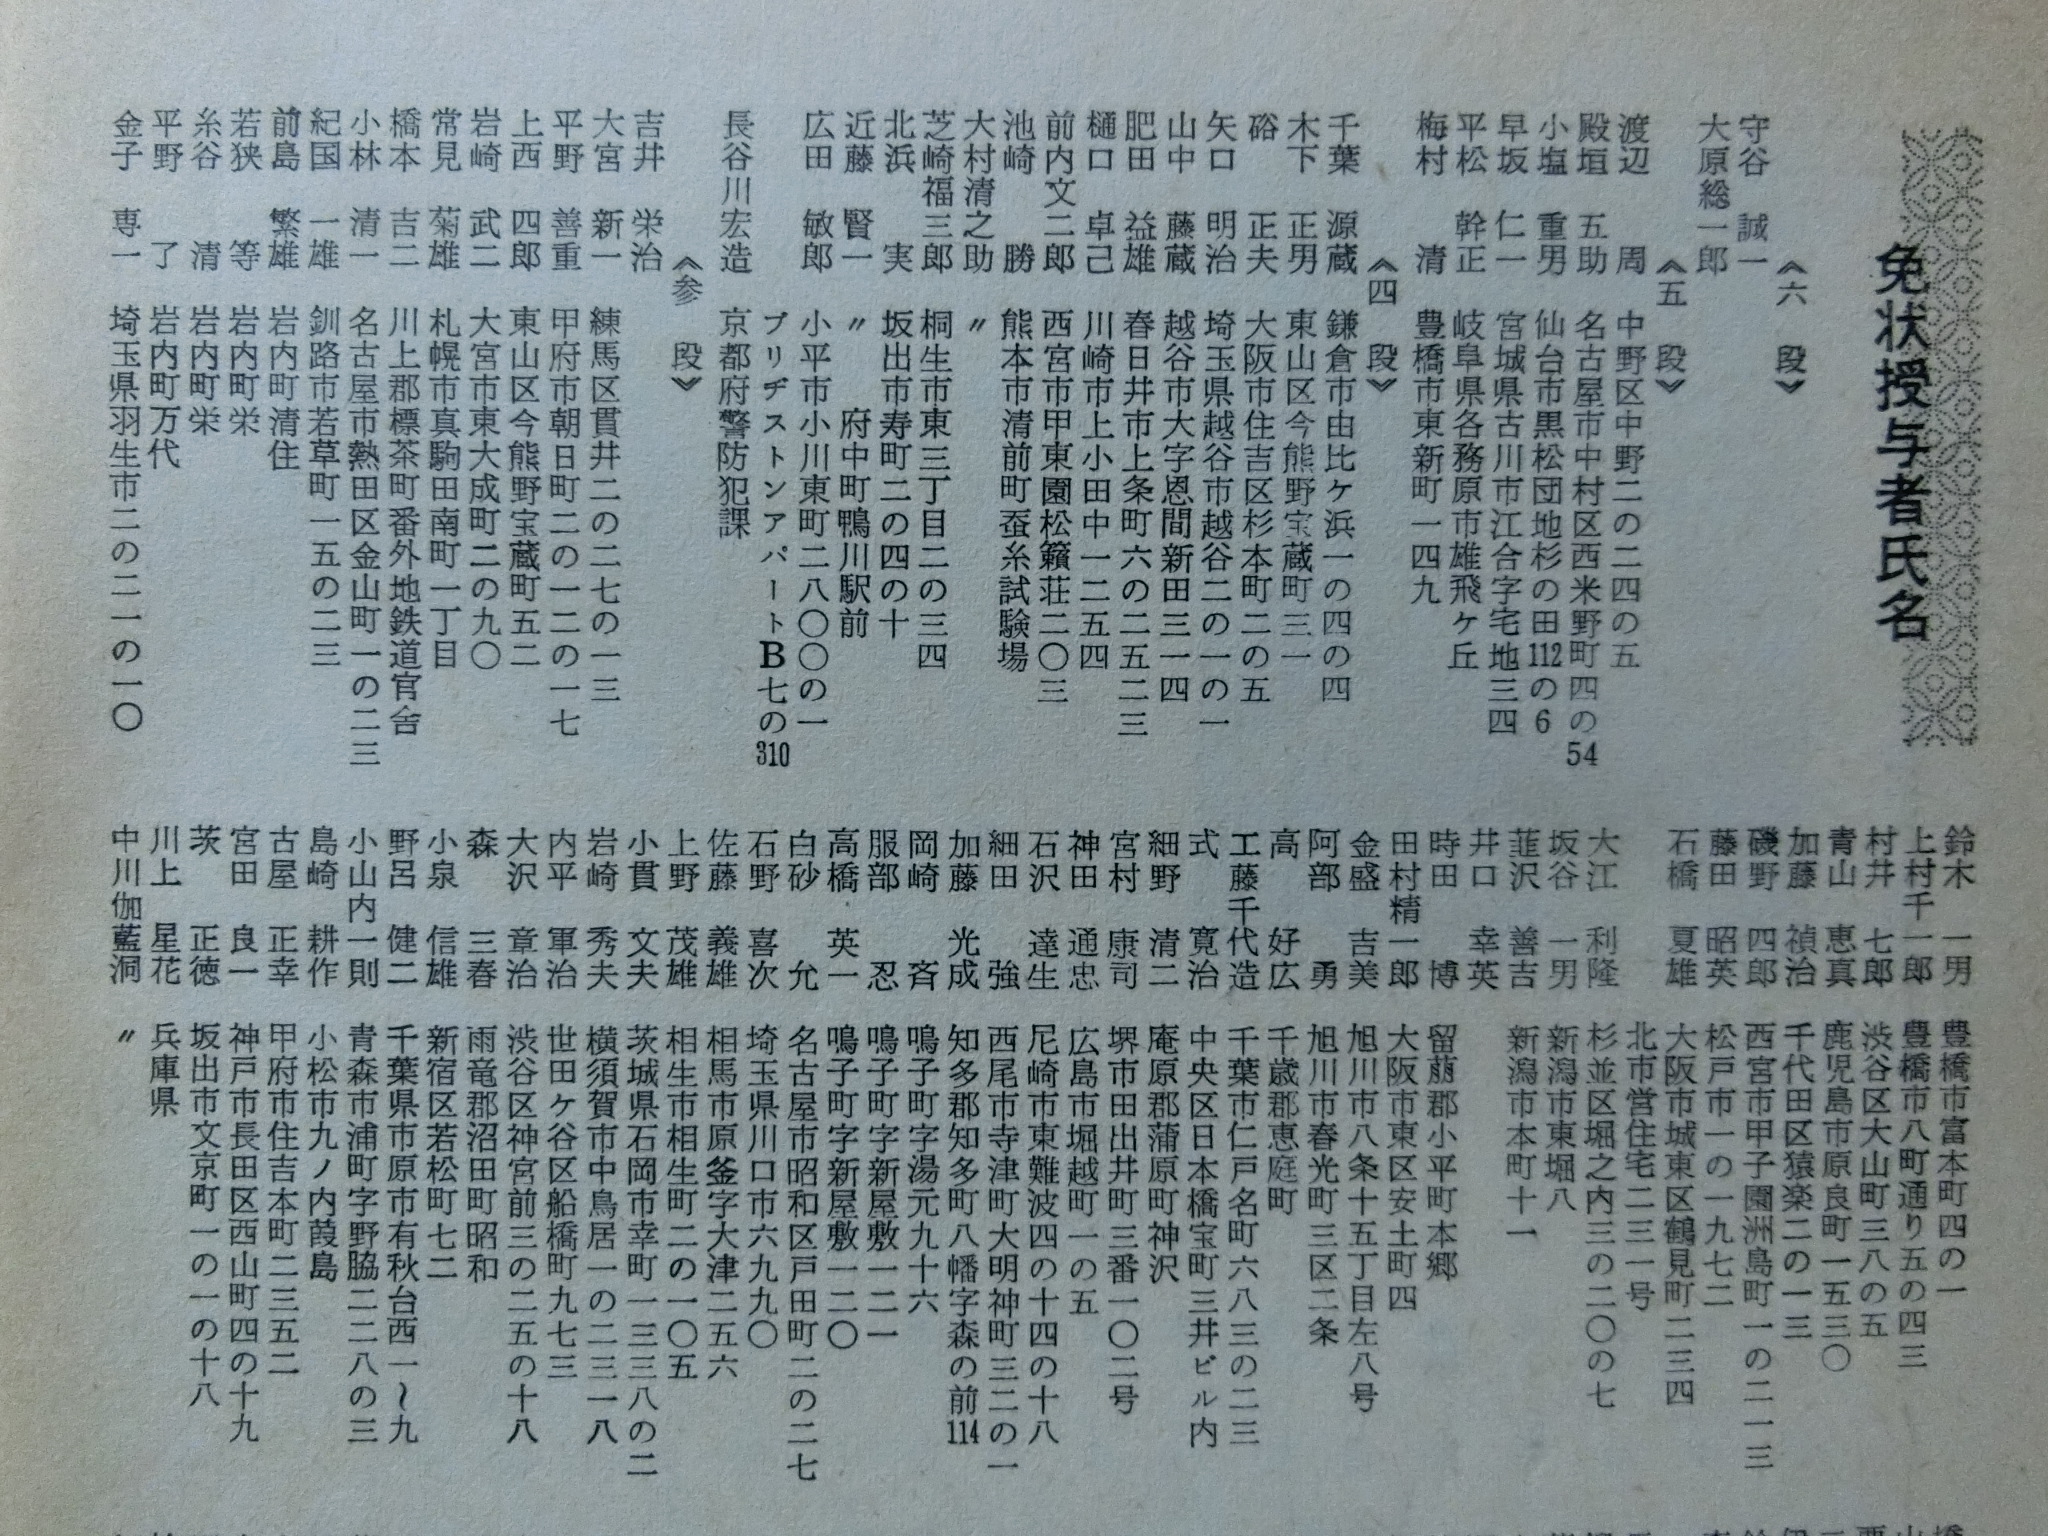 免状授与者氏名
《六　段》
守谷　誠一
大原総一郎
《五　段》
渡辺　　周　中野区中野二の二四の五
殿垣　五助　名古屋市中村区西米野町四の54
小塩　重男　仙台市黒松団地杉の田112の6
早坂　仁一　宮城県古川市江合字宅地三四
平松　幹正　岐阜県各務原市雄飛ケ丘
梅村　　清　豊橋市東新町一四九
《四　段》
千葉　源蔵　鎌倉市由比ケ浜一の四の四
木下　正男　東山区今熊野宝蔵町三一
硲　　正夫　大阪市住吉区杉本町二の五
矢口　明治　埼玉県越谷市越谷二の一の一
山中　藤蔵　越谷市大字恩間新田三一四
肥田　益雄　春日井市上条町六の二五二三
樋口　卓己　川崎市上小田中一二五四
前内文二郎　西宮市甲東園松籟荘二〇三
池崎　　勝　熊本市清前町蚕糸試験場
大村清之助　〃
芝崎福三郎　桐生市東三丁目二の三四
北浜　　実　坂出市寿町二の四の十
近藤　賢一　〃　府中町鴨川駅前
広田　敏郎　小平市小川東町二八〇〇の一
ブリヂストンアパートB七の310
長谷川宏造　京都府警防犯課
《参　段》
吉井　栄治
大宮　新一　練馬区貫井二の二七の一三
平野　善重　甲府市朝日町二の一二の一七
上西　四郎　東山区今熊野宝蔵町五二
岩崎　武二　大宮市東大成町二の九〇
常見　菊雄　札幌市真駒田南町一丁目
橋本　吉二　川上郡標茶町番外地鉄道官舎
小林　清一　名古屋市熱田区金山町一の二三
紀国　一雄　釧路市若草町一五の二三
前島　繁雄　岩内町清住
若狭　　等　岩内町栄
糸谷　　清　岩内町栄
平野　　了　岩内町万代
金子　専一　埼玉県羽生市二の二一の一〇
鈴木　一男　豊橋市富本町四の一
上村千一郎　豊橋市八町通り五の四三
村井　七郎　渋谷区大山町三八の五
青山　恵真　鹿児島市原良町一五三〇
加藤　禎治　千代田区猿楽二の一三
磯野　四郎　西宮市甲子園洲島町一の二一三
藤田　昭英　松戸市一の一九七二
石橋　夏雄　大阪市城東区鶴見町二三四
北市営住宅二三一号
大江　利隆　杉並区堀之内三の二〇の七
坂谷　一男　新潟市東堀八
韮沢　善吉　新潟市本町十一
井口　幸英
時田　　博　留萠郡小平町本郷
田村精一郎　大阪市東区安土町四
金盛　吉美　旭川市八条十五丁目左八号
阿部　　勇　旭川市春光町三区二条
高　　好広　千歳郡恵庭町
工藤千代造　千葉市仁戸名町六八三の二三
式　　寛治　中央区日本橋宝町三井ビル内
細野　清二　庵原郡蒲原町神沢
宮村　康司　堺市田出井町三番一〇二号
神田　通忠　広島市堀越町一の五
石沢　達生　尼崎市東難波四の十四の十八
細田　　強　西尾市寺津町大明神町三二の一
加藤　光成　知多郡知多町八幡字森の前114
岡崎　　斉　鳴子町字湯元九十六
服部　　忍　鳴子町字新屋敷一二一
高橋　英一　鳴子町字新屋敷一二〇
白砂　　允　名古屋市昭和区戸田町二の二七
石野　喜次　埼玉県川口市六九九〇
佐藤　義雄　相馬市原釜字大津二五六
上野　茂雄　相生市相生町二の一〇五
小貫　文夫　茨城県石岡市幸町一三三八の二
岩崎　秀夫　横須賀市中鳥居一の二三一八
内平　軍治　世田ケ谷区船橋町九七三
大沢　章治　渋谷区神宮前三の二五の十八
森　　三春　雨竜郡沼田町昭和
小泉　信雄　新宿区若松町七二
野呂　健二　千葉県市原市有秋台西一〜九
小山内一則　青森市浦町字野脇二二八の三
島崎　耕作　小松市九ノ内葭島
古屋　正幸　甲府市住吉本町二三五二
宮田　良一　神戸市長田区西山町四の十九
茨　　正徳　坂出市文京町一の一の十八
川上　星花　兵庫県
中川伽藍洞　〃